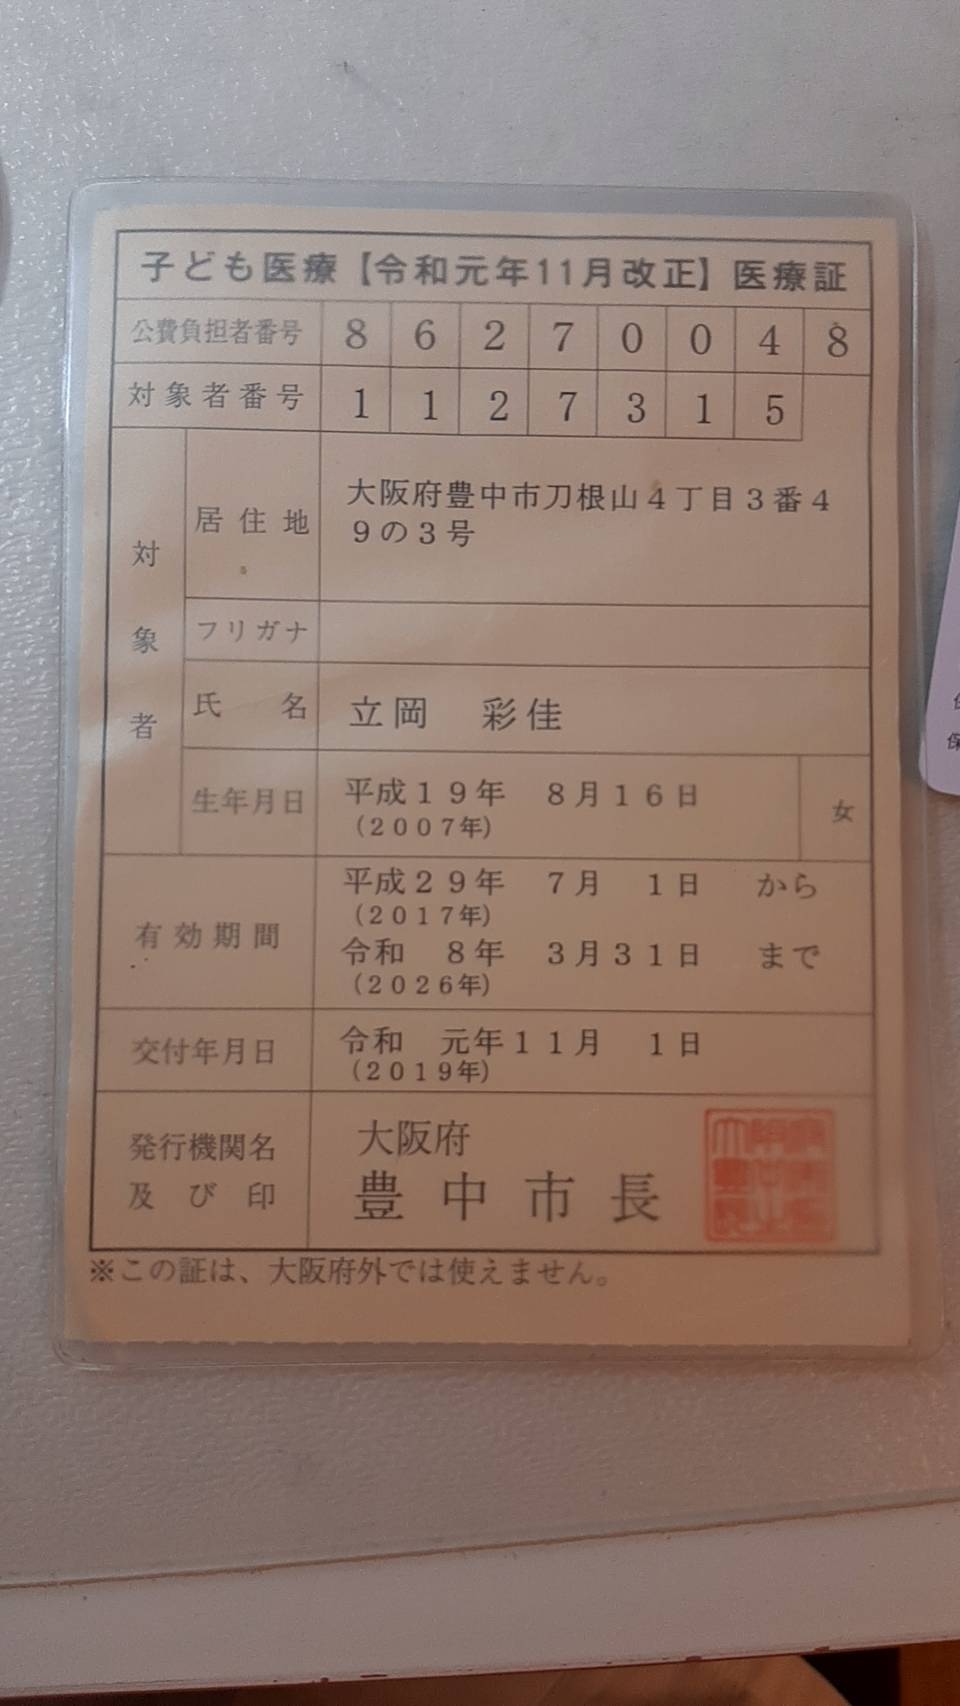 子ども医療【令和元年11月改正】医療証
公費負担者番号 8 6 2 7 0 0 4 8
対象者番号 1 1 2 7 3 1 5
対象者
居住地 大阪府豊中市刀根山4丁目3番4
9の3号
フリガナ
氏名 立岡 彩佳
生年月日 平成19年 8月16日 女
(2007年)
有効期間 平成29年 7月 1日 から
(2017年)
令和 8年 3月31日 まで
(2026年)
交付年月日 令和 元年11月 1日
(2019年)
発行機関名 大阪府
及び印 豊中市長
※この証は、大阪府外では使えません。